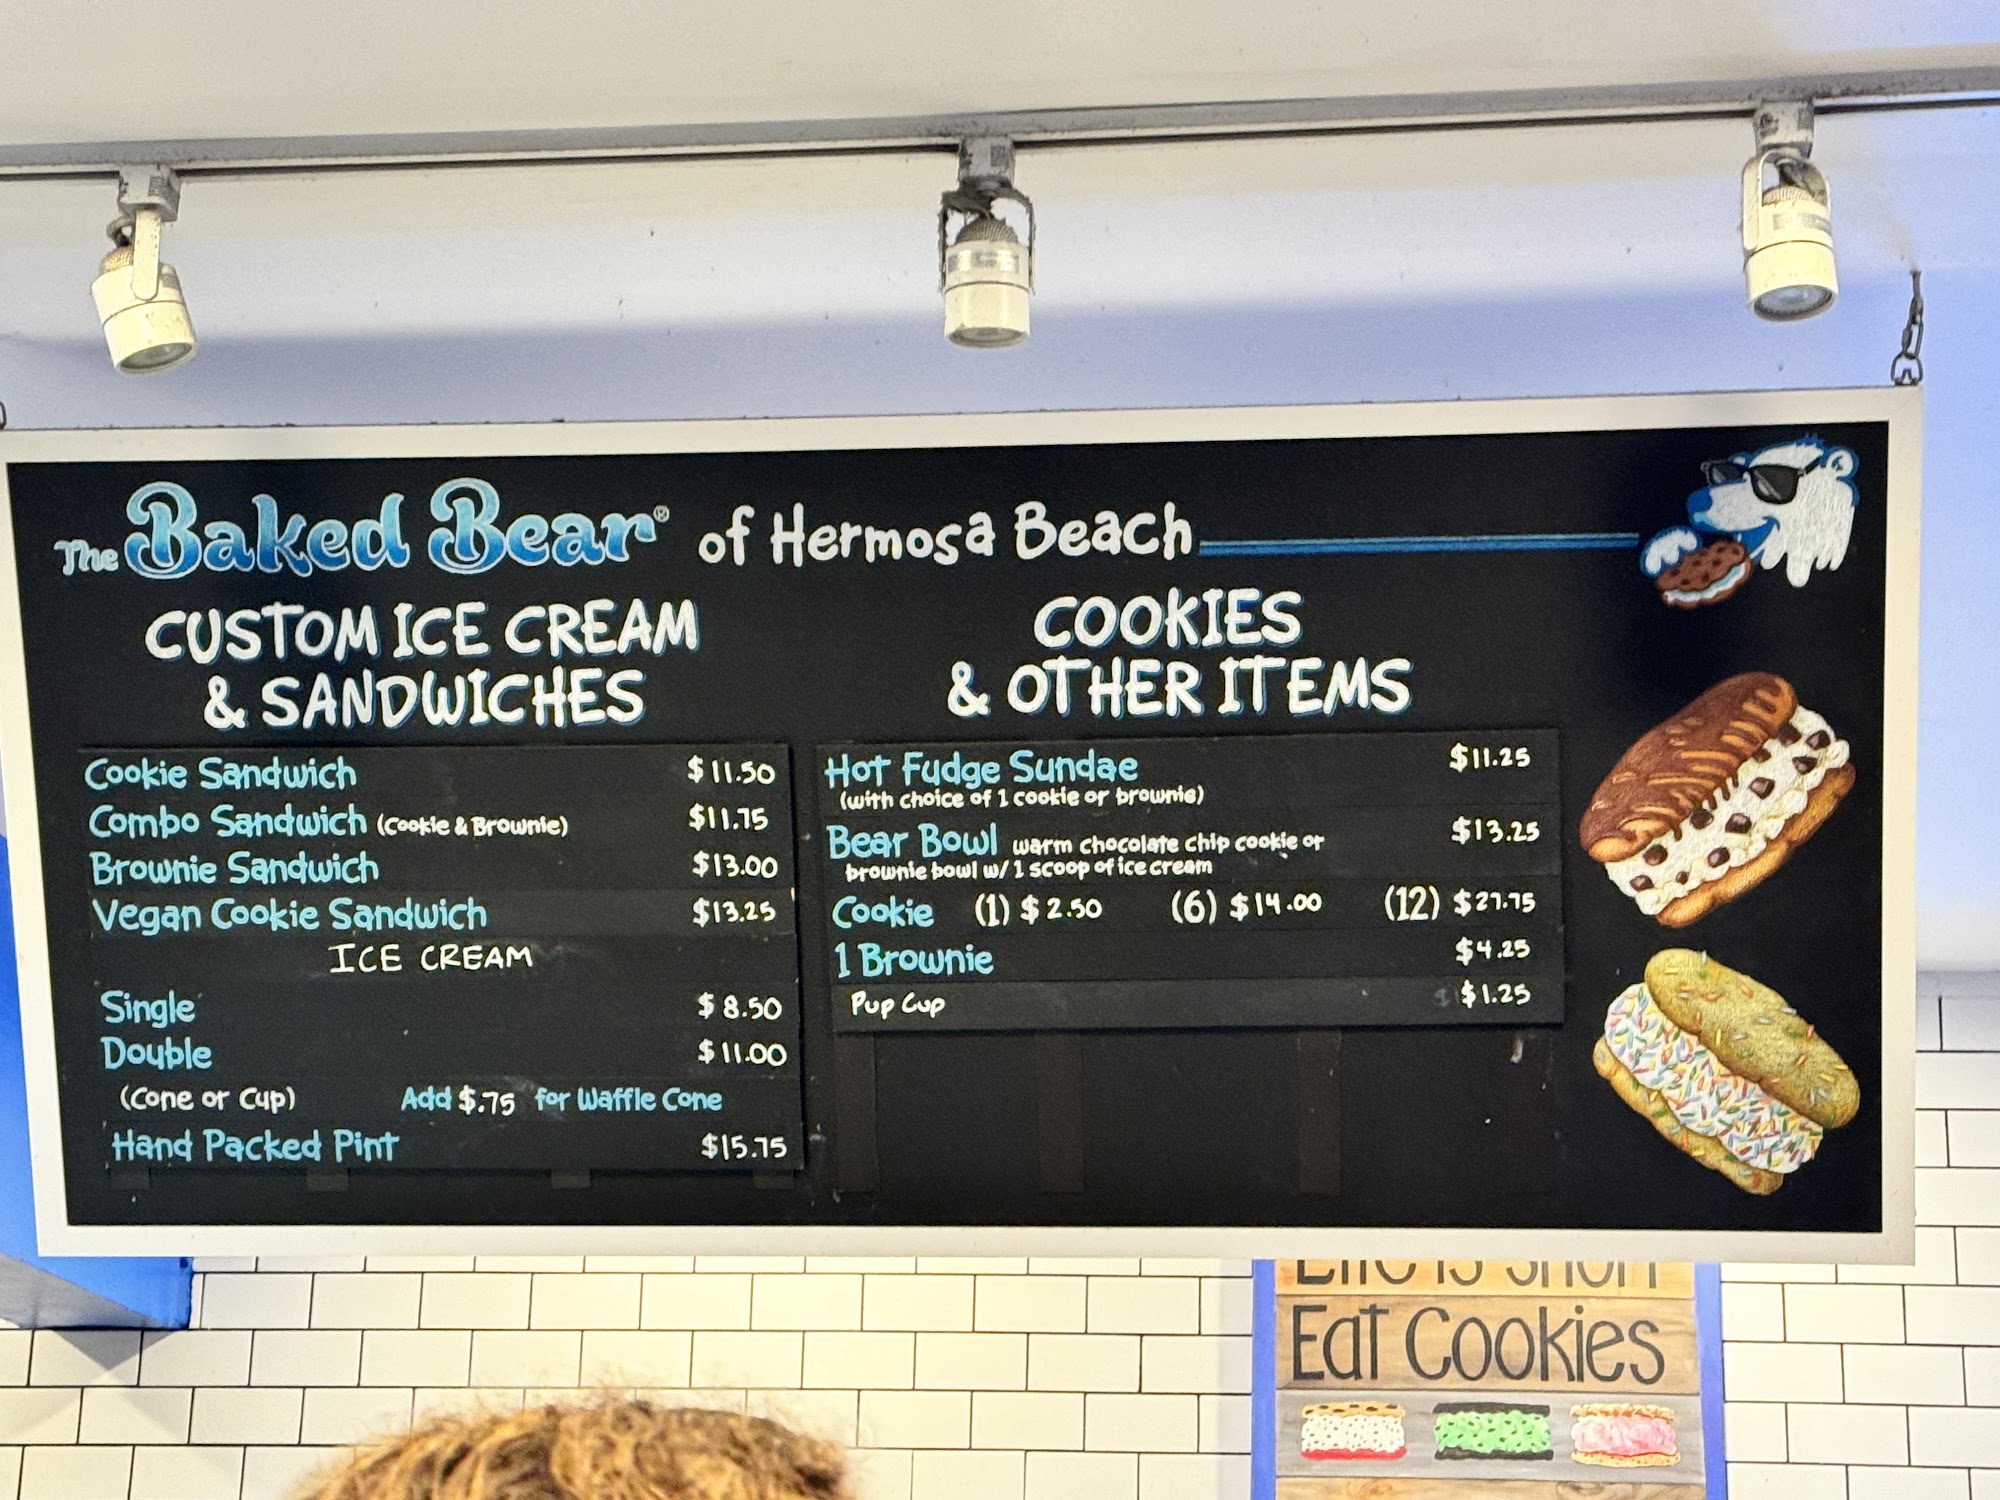 The Baked Bear® of Hermosa Beach
CUSTOM ICE CREAM
& SANDWICHES
Cookie Sandwich $11.50
Combo Sandwich (Cookie & Brownie) $11.75
Brownie Sandwich $13.00
Vegan Cookie Sandwich $13.25
ICE CREAM
Single $8.50
Double $11.00
(Cone or Cup) Add $.75 for Waffle Cone
Hand Packed Pint $15.75
COOKIES
& OTHER ITEMS
Hot Fudge Sundae $11.25
(with choice of 1 cookie or brownie)
Bear Bowl warm chocolate chip cookie or $13.25
brownie bowl w/ 1 scoop of ice cream
Cookie (1) $2.50 (6) $14.00 (12) $27.75
1 Brownie $4.25
Pup Cup $1.25
Life is short
Eat Cookies